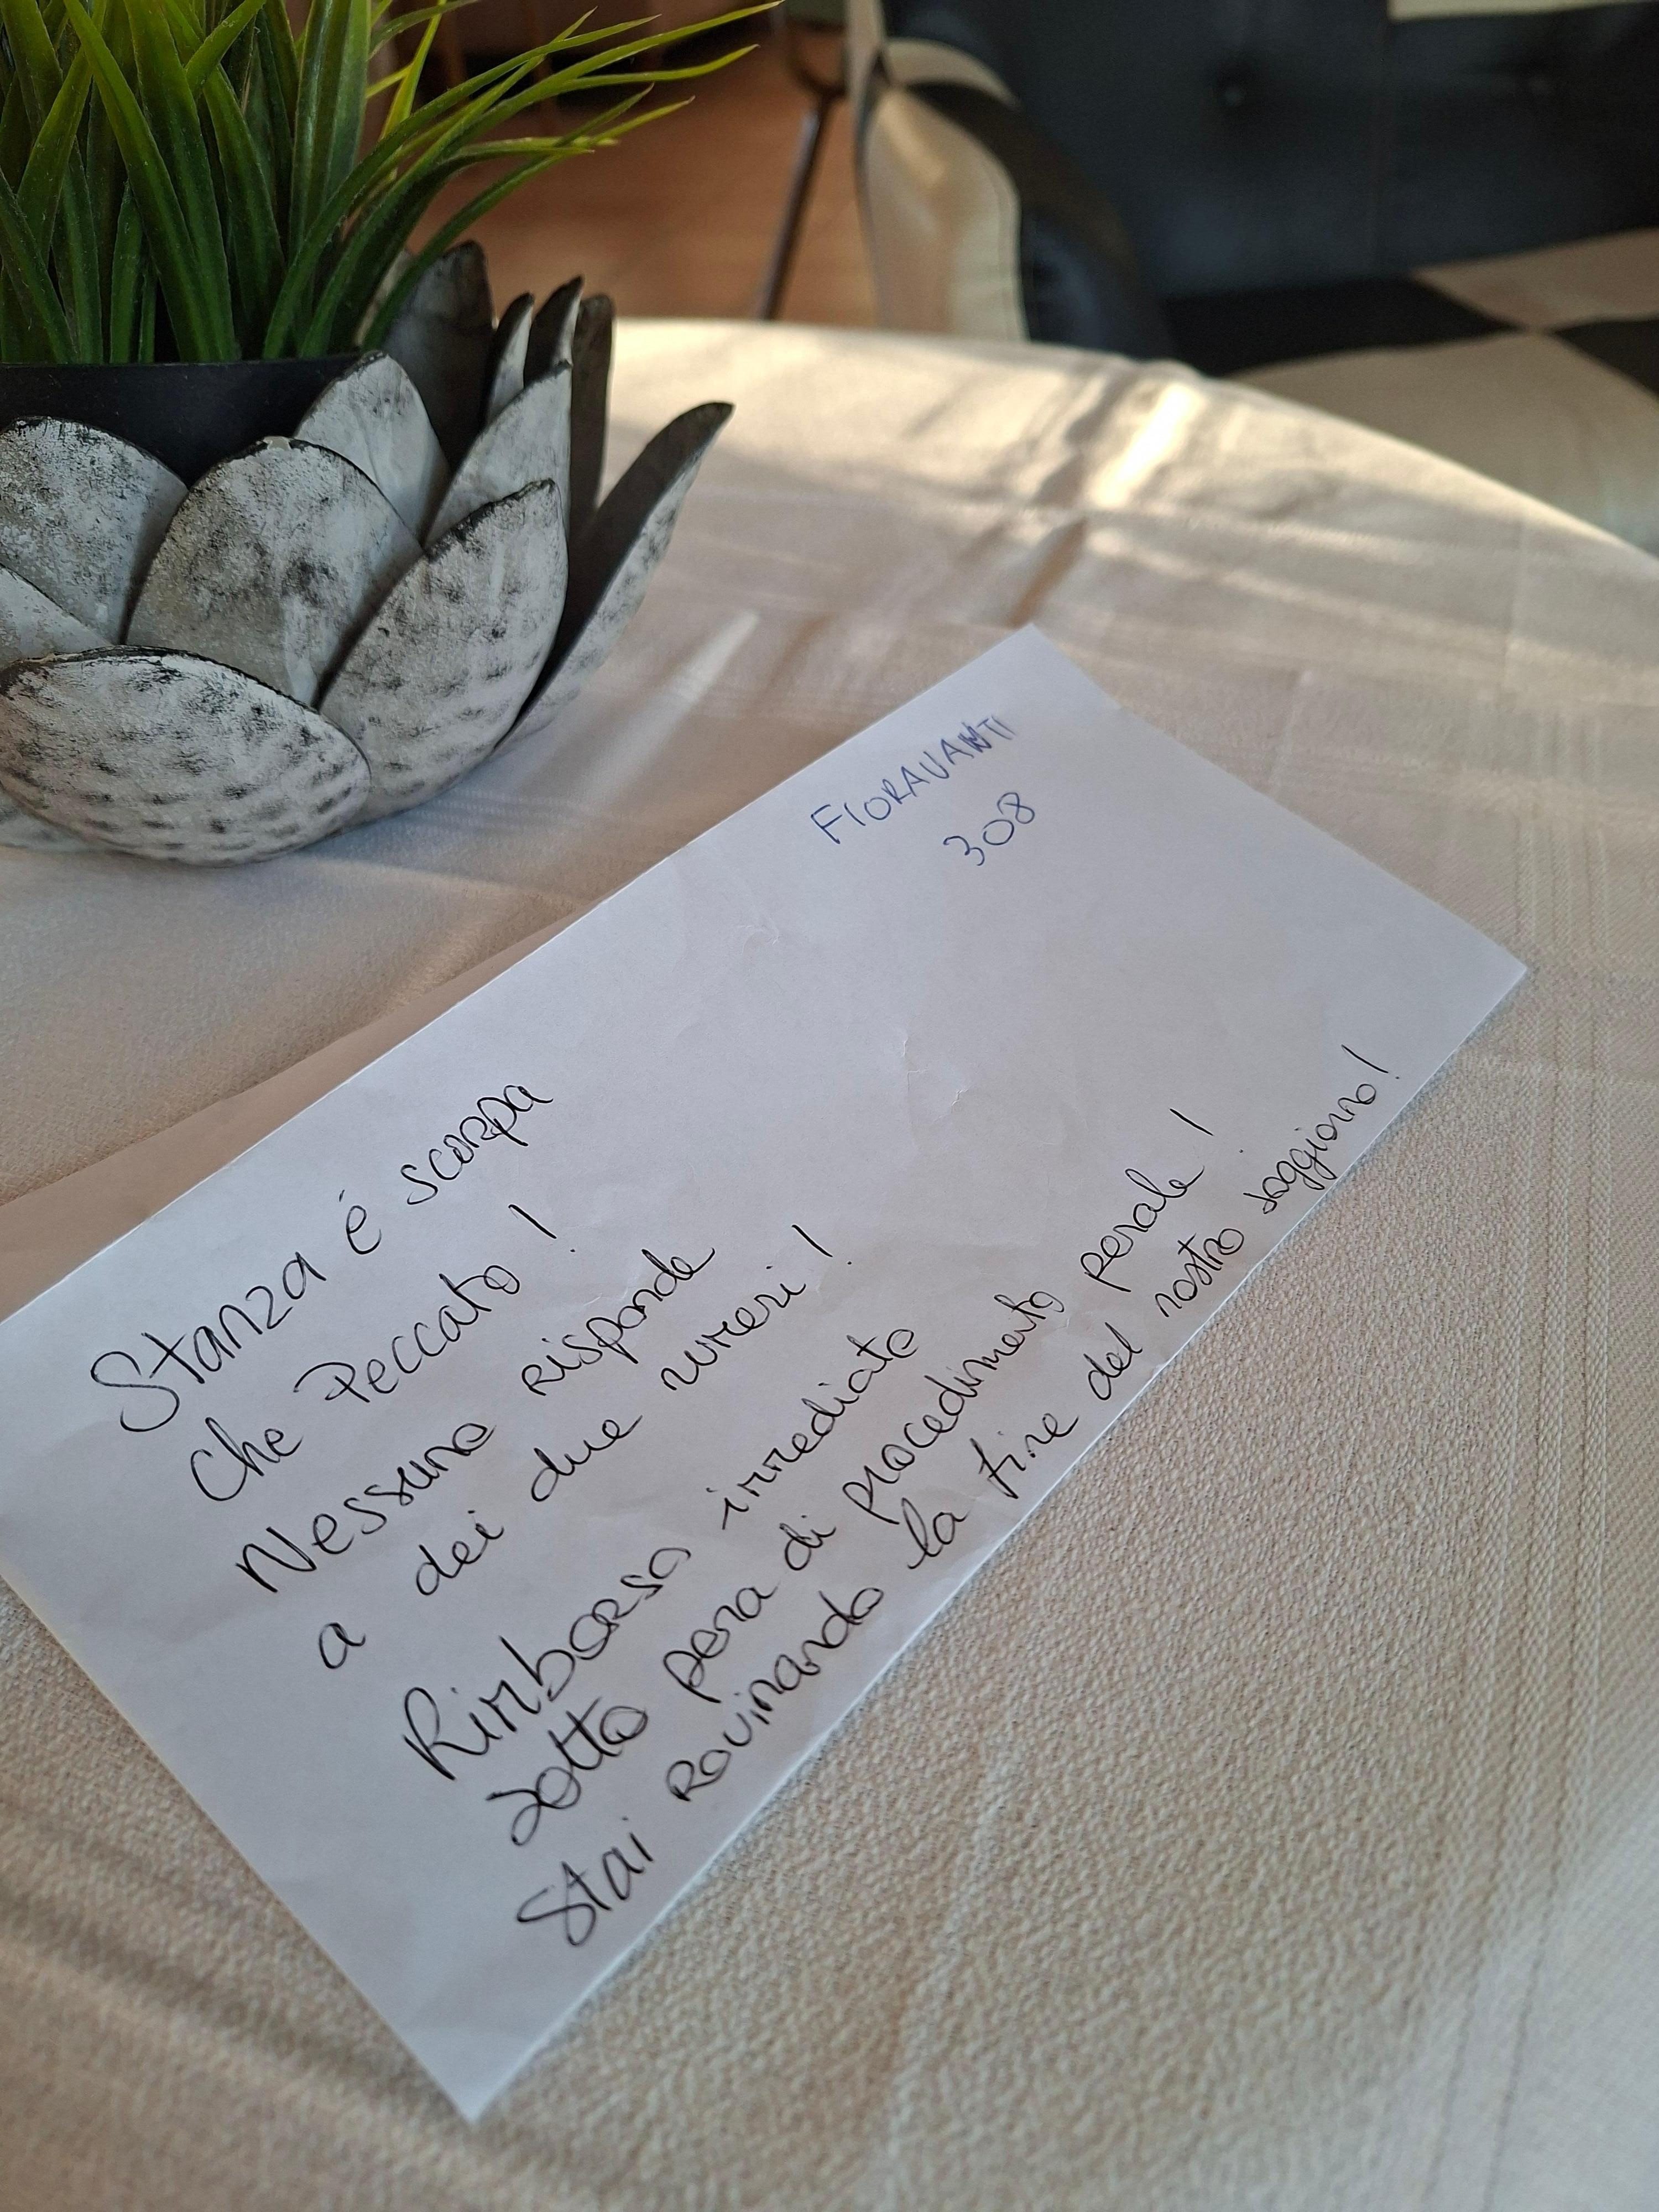 FIORAVANTI
308
Stanza é scarpa
che Peccato!
Nessuno risponde
a dei due numeri!
Rimborso immediato
sotto pena di procedimento penale!
Stai rovinando la fine del nostro soggiorno!